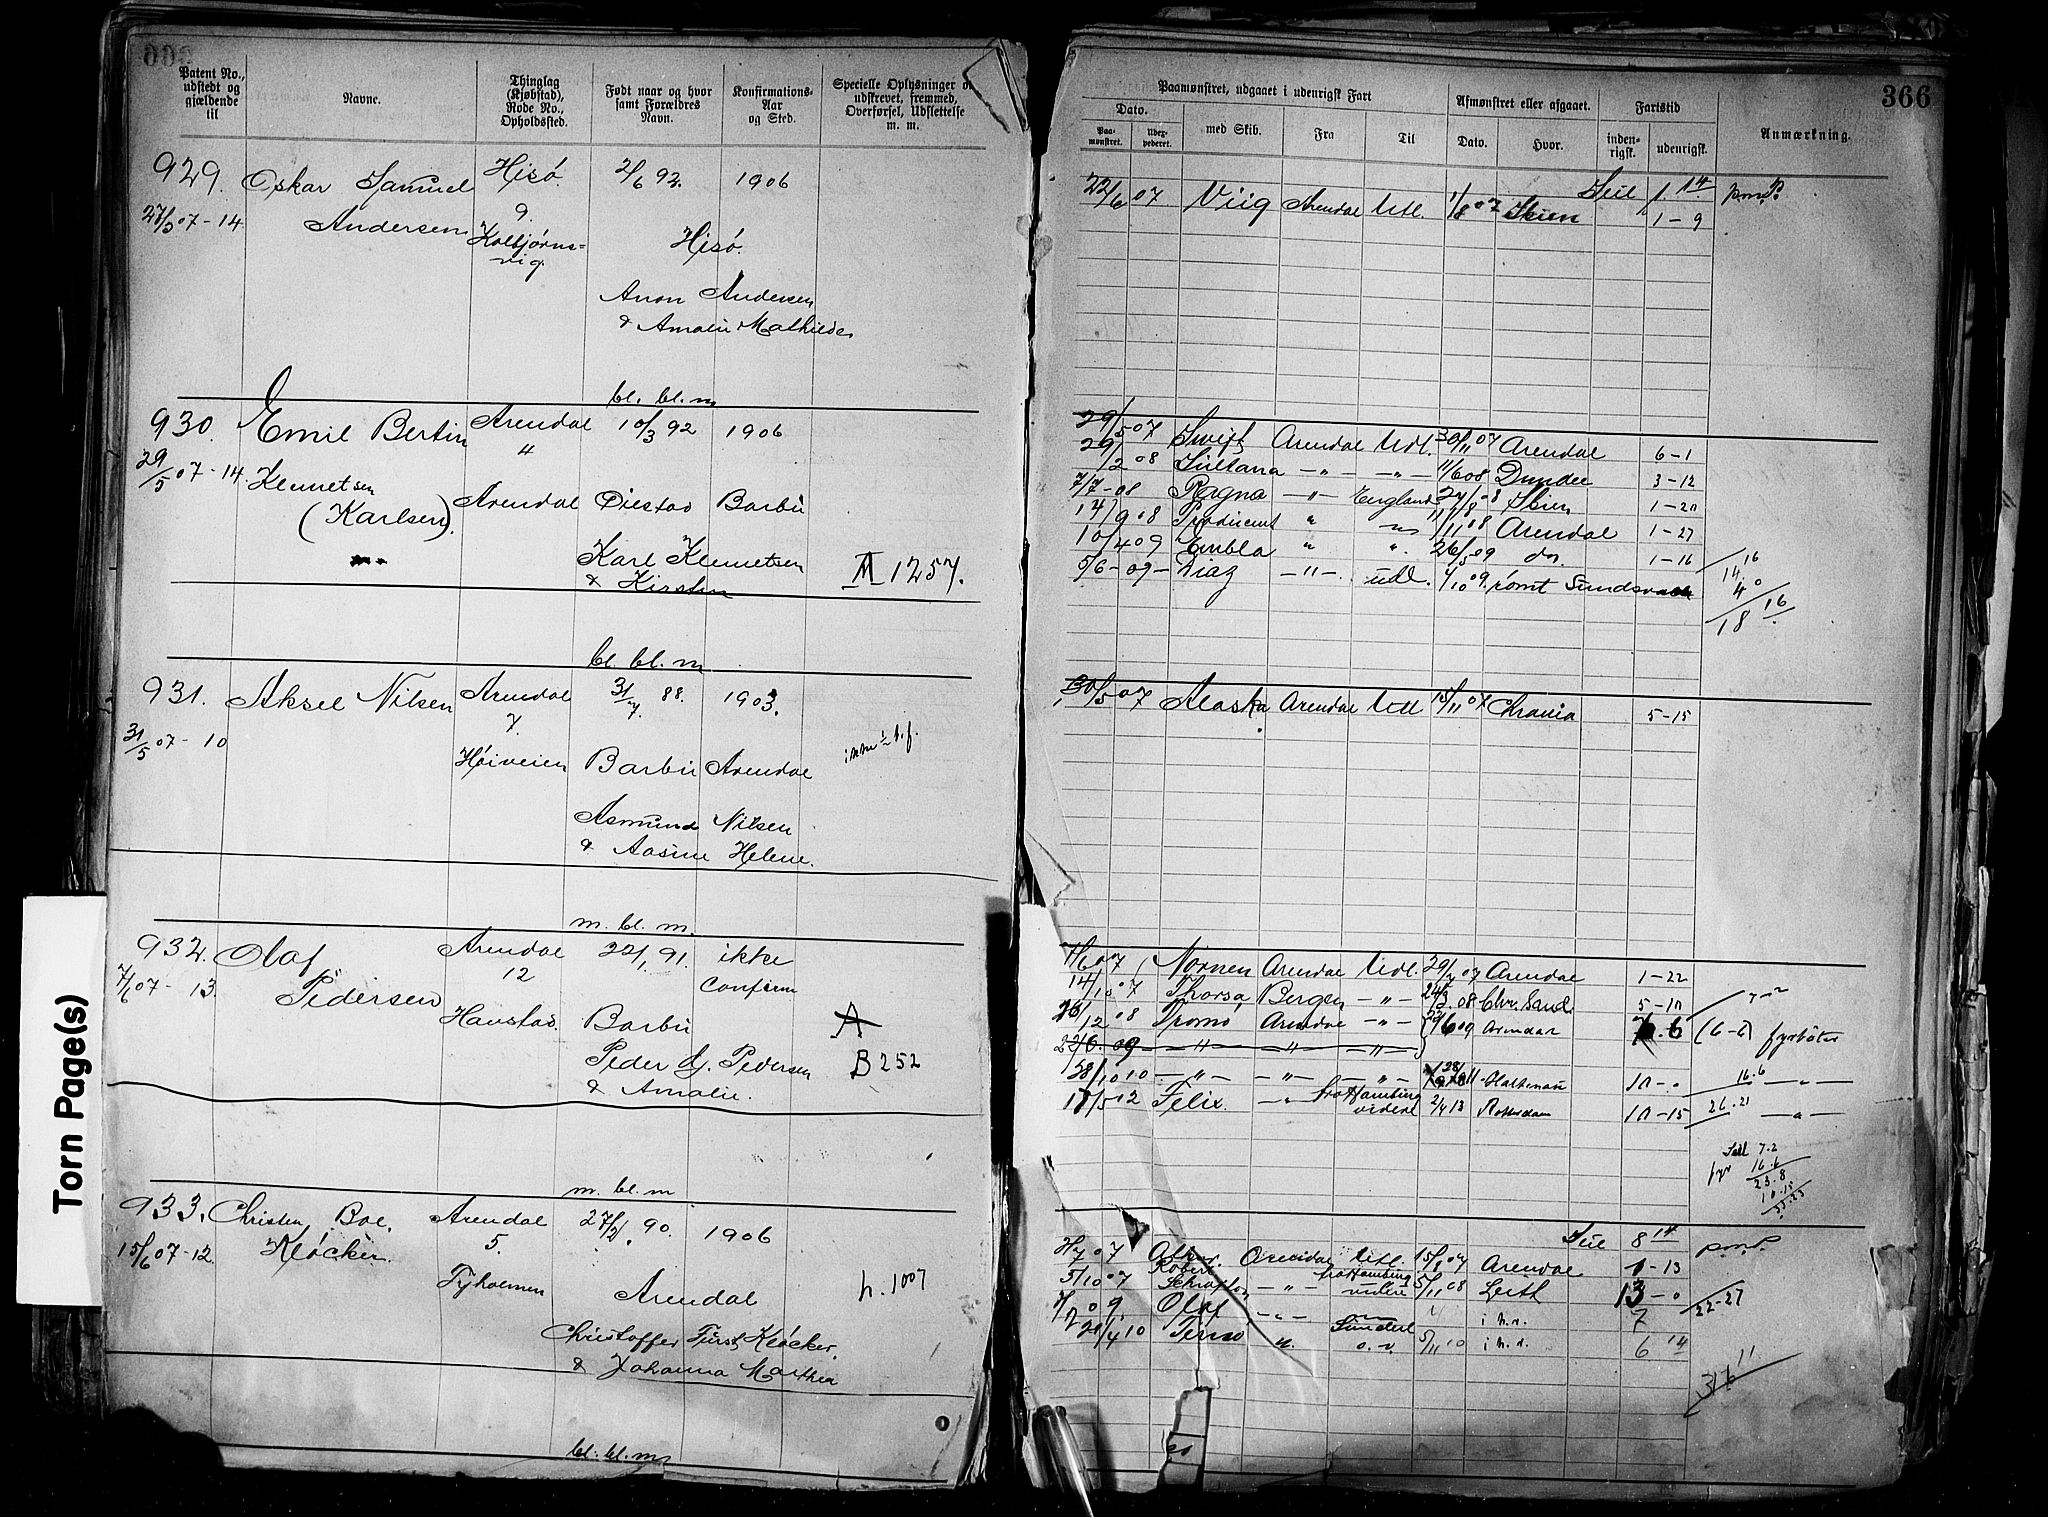 Patent No., udstedt og gjældende til
Navne.
Thinglag (Kjøbstad), Rode No., Opholdssted.
Født naar og hvor samt Forældres Navn.
Konfirmations-Aar og Sted.
Specielle Oplysninger om udskrevet, fremmed, Overførsel, Udslettelse m. m.
929. Oskar Samuel Hisø 2/6 92. 1906
27/5 07-14 Andersen 9. Hisø.
Kolbjørns-
vig.
Aron Andersen
& Amalie Mathilde
bl. bl. m
930. Emil Bertin Arendal 10/3 92 1906
4
29/5 07-14. Kennetsen Arendal Øiestad Barbu
(Karlsen).
Karl Kennetsen M 1257.
& Kirsten
bl. bl. m
931. Aksel Nilsen Arendal 31/7. 88. 1903.
7.
31/5 07-10 Høiveien Barbu Arendal
Asmund Nilsen
& Aasine Helene.
m. bl. m.
932. Olaf Arendal 22/1. 91. ikke
7/6 07-13. Pedersen 12 conferm
Havstad. Barbu A
Peder G. Pedersen B 252
& Amalie.
m. bl. m
933. Christen Boe. Arendal 27/2. 90. 1906
15/6 07-12. Kløcker 5.
Tyholmen Arendal h. 1007
Christoffer Fürst Kløcker.
& Johanna Marthea
bl. bl. m
366
Paamønstret, udgaaet i udenrigsk Fart
Afmønstret eller afgaaet.
Fartstid
Anmærkning.
Dato.
Paa-mønstret.
Udex-pederet.
med Skib.
Fra
Til
Dato.
Hvor.
inden-rigsk.
udenrigsk.
Seil 1. 14.
22/6 07 Viig Arendal Utl. 1/8 07 Skien 1-9
29/5 07 Swift Arendal Utl. 30/11 07 Arendal 6-1
29/2 08 Sultana -"- -"- 11/6 08 Dundee 3-12
7/7-08 Ragna -"- England Skien 1-20
14/9 08 Producent " " 11/11 08 Arendal 1-27
10/4 09 Embla " ". 26/5 09 do. 1-16
5/6-09- Diaz -"-. utl. 4/10 09. rømt Sundsvall
16
14.
4 0
18 16
30/5 07 Alaska Arendal Utl 15/11 07 Chrania 5-15
7/6 07 Nornen Arendal Utl. 29/7 07 Arendal 1-22
14/10 07 Thorsa Bergen -"- 24/3 08 Chr. Sand. 5-10
26/12 08 Tromø Arendal -"- 29/6 09 Arendal 6 (6-6) fyrbøter
22/6. 09 -"- -"- -"-
28/10 10 -"- -"- -"- 16.6 -"-
17/5 12 Felix. -"- fra Hamburg videre 2/4 13 Rotterdam 10-15 26.21 -"-
Seil 7.2
fyr 16.6
23.8
10.15
33.23
Seil 8 14
07 Arendal Utl. 15/8 07 Arendal 1-13
5/10 07 Robert -"- fra Hamburg videre 5/11 08 Leith 13-0 22-27
7/2 09. Olaf -"- " i n.r. 7
21/4 10 Sunderl o.v. 5/11 10 i n.r. 6 14